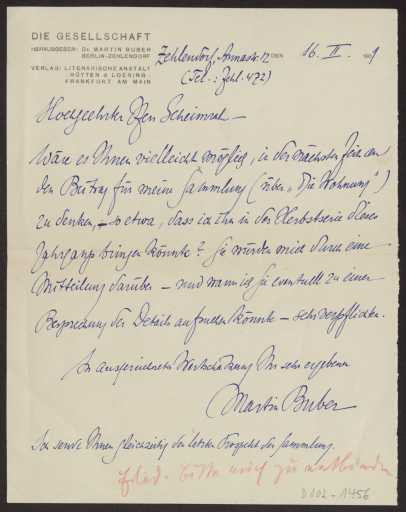 DIE GESELLSCHAFT
HERAUSGEBER: Dr. MARTIN BUBER
BERLIN-ZEHLENDORF
VERLAG: LITERARISCHE ANSTALT
RÜTTEN & LOENING
FRANKFURT AM MAIN
Zehlendorf, Annastr. 12 DEN 16. II. 1909
(Tel.: Zehl. 472)
Hochgeehrter Herr Geheimrat –
Wäre es Ihnen vielleicht möglich, in der nächsten Zeit an
den Beitrag für meine Sammlung (über „Die Wohnung“)
zu denken, – so etwa, dass ich ihn in der Herbstserie dieses
Jahrgangs bringen könnte? Sie würden mich durch eine
Mitteilung darüber – und wann ich Sie eventuell zu einer
Besprechung der Details aufsuchen könnte – sehr verpflichten.
In ausgezeichneter Wertschätzung Ihr sehr ergebener
Martin Buber
Ich sende Ihnen gleichzeitig den letzten Prospekt der Sammlung.
bitte mich zu entbinden
D102-1456